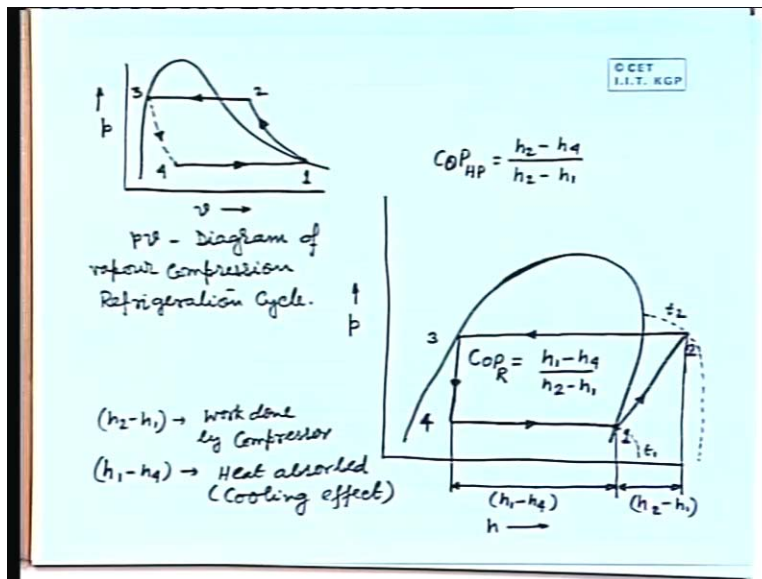 © CET
I.I.T. KGP
3
2
p
4
1
v
pv - Diagram of
vapour Compression
Refrigeration Cycle.
COP_HP = (h₂ - h₄) / (h₂ - h₁)
p
t₂
3
2
COP_R = (h₁ - h₄) / (h₂ - h₁)
4
1
t₁
(h₂-h₁) → Work done
by Compressor
(h₁-h₄) → Heat absorbed
(Cooling effect)
(h₁-h₄)
(h₂-h₁)
h